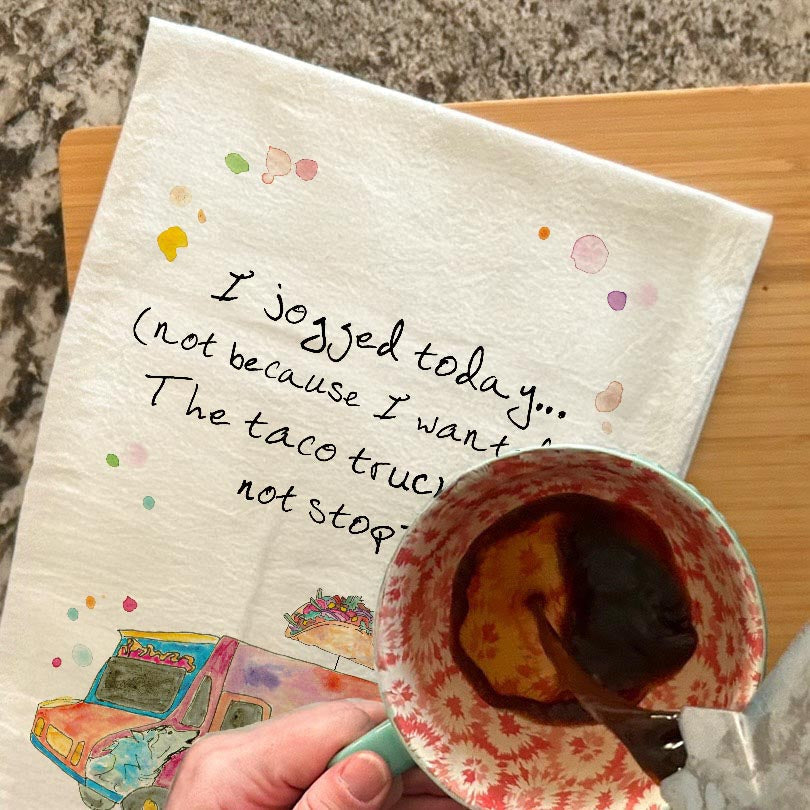 I jogged today...
(not because I want
The taco
not stop